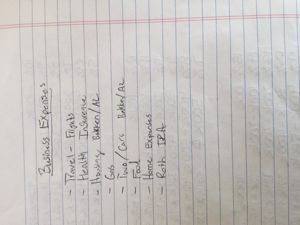 Business Expenses
- Travel - Flights
- Health Insurance
- Housing Bakken/AZ
- Gas
- Two/Cars Bakken/AZ
- Food
- Home Expenses
- Roth IRA